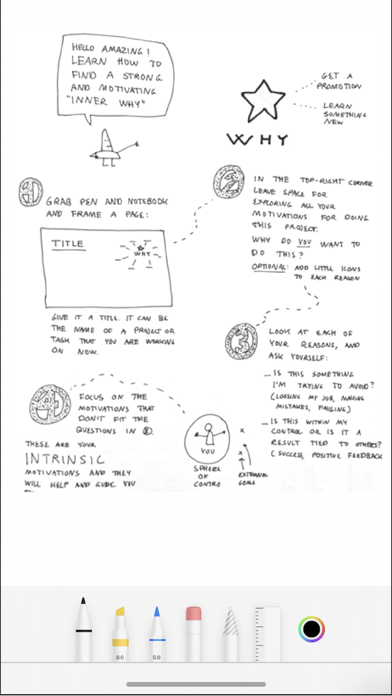 HELLO AMAZING!
LEARN HOW TO
FIND A STRONG
AND MOTIVATING
"INNER WHY"
GET A
PROMOTION
LEARN
SOMETHING
NEW
WHY
1
GRAB PEN AND NOTEBOOK
AND FRAME A PAGE:
TITLE
WHY
GIVE IT A TITLE. IT CAN BE
THE NAME OF A PROJECT OR
TASK THAT YOU ARE WORKING
ON NOW.
2
IN THE TOP-RIGHT CORNER
LEAVE SPACE FOR
EXPLORING ALL YOUR
MOTIVATIONS FOR DOING
THIS PROJECT.
WHY DO YOU WANT TO
DO THIS?
OPTIONAL: ADD LITTLE ICONS
TO EACH REASON
3
LOOK AT EACH OF
YOUR REASONS, AND
ASK YOURSELF:
_ IS THIS SOMETHING
I'M TRYING TO AVOID?
(LOOSING MY JOB, MAKING
MISTAKES, FAILING)
_ IS THIS WITHIN MY
CONTROL OR IS IT A
RESULT TIED TO OTHERS?
(SUCCESS, POSITIVE FEEDBACK
4
FOCUS ON THE
MOTIVATIONS THAT
DON'T FIT THE
QUESTIONS IN 3.
THESE ARE YOUR
INTRINSIC
MOTIVATIONS AND THEY
WILL HELP AND GUIDE YOU
YOU
SPHERE
OF
CONTRO
x
x
EXTERNAL
GOALS
80
50